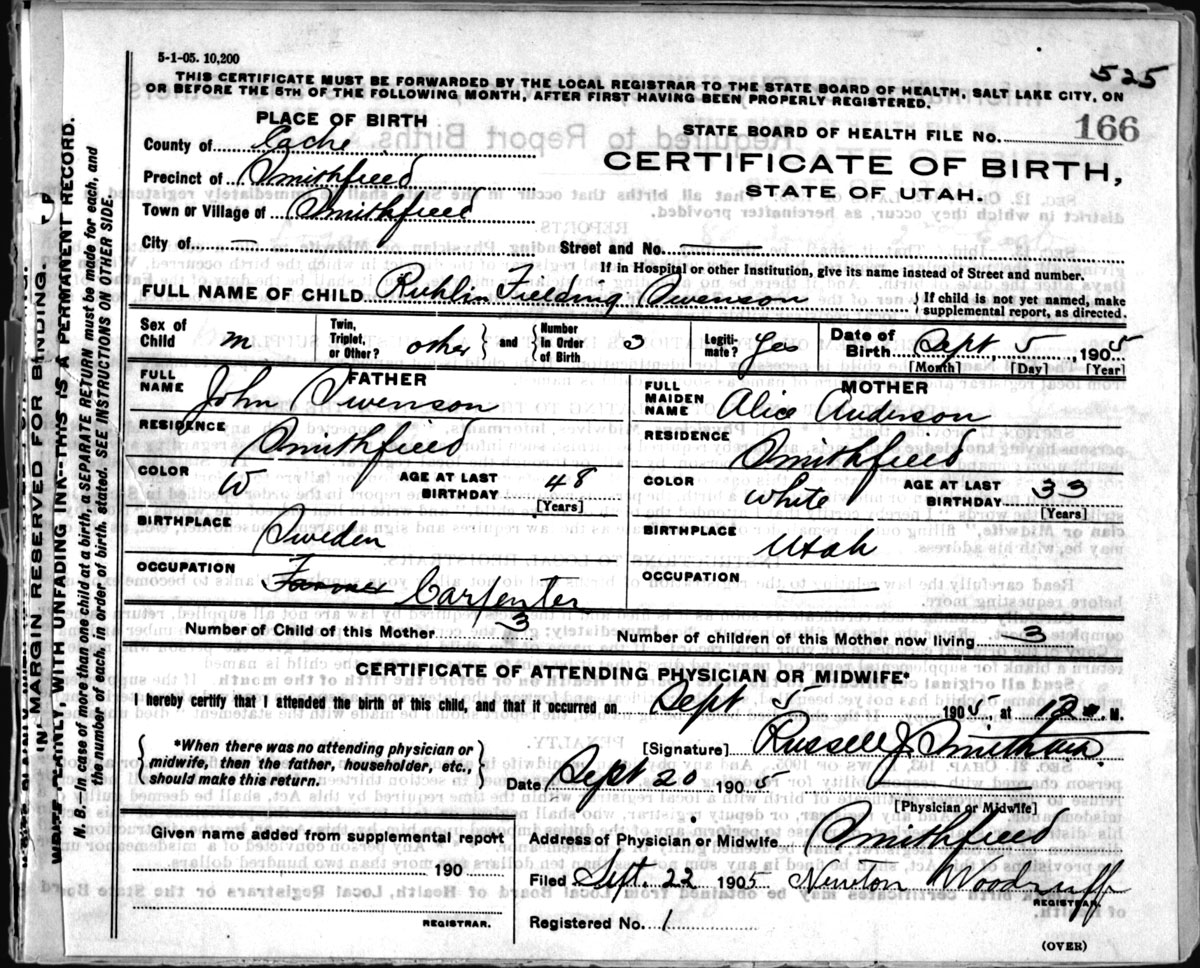 5-1-05. 10,200
525
THIS CERTIFICATE MUST BE FORWARDED BY THE LOCAL REGISTRAR TO THE STATE BOARD OF HEALTH, SALT LAKE CITY, ON
OR BEFORE THE 5TH OF THE FOLLOWING MONTH, AFTER FIRST HAVING BEEN PROPERLY REGISTERED.
PLACE OF BIRTH
STATE BOARD OF HEALTH FILE No. 166
County of Cache
CERTIFICATE OF BIRTH,
Precinct of Smithfield
STATE OF UTAH.
Town or Village of Smithfield
City of — Street and No. —
If in Hospital or other Institution, give its name instead of Street and number.
FULL NAME OF CHILD Fielding Swenson { If child is not yet named, make
supplemental report, as directed.
Sex of Child m Twin, Triplet, or Other? other } and { Number In Order of Birth 3 Legiti-mate? Yes Date of Birth Sept 5, 1905
[Month] [Day] [Year]
FATHER
FULL NAME John Swenson
MOTHER
FULL MAIDEN NAME Alice Anderson
RESIDENCE Smithfield
RESIDENCE Smithfield
COLOR W AGE AT LAST BIRTHDAY 48 [Years]
COLOR White AGE AT LAST BIRTHDAY 33 [Years]
BIRTHPLACE Sweden
BIRTHPLACE Utah
OCCUPATION Farmer Carpenter
OCCUPATION —
Number of Child of this Mother 3 Number of children of this Mother now living 3
CERTIFICATE OF ATTENDING PHYSICIAN OR MIDWIFE*
I hereby certify that I attended the birth of this child, and that it occurred on Sept 5 1905, at 12 M.
{ *When there was no attending physician or
midwife, then the father, householder, etc.,
should make this return. }
[Signature] Russell J Smith
Date Sept 20 1905
[Physician or Midwife]
Given name added from supplemental report
190
REGISTRAR.
Address of Physician or Midwife Smithfield
Filed Sept. 22 1905 Newton Woodruff
REGISTRAR.
Registered No. 1
(OVER)
IN MARGIN RESERVED FOR BINDING.
WRITE PLAINLY, WITH UNFADING INK--THIS IS A PERMANENT RECORD.
N. B.—In case of more than one child at a birth, a SEPARATE RETURN must be made for each, and
the number of each, in order of birth, stated. SEE INSTRUCTIONS ON OTHER SIDE.